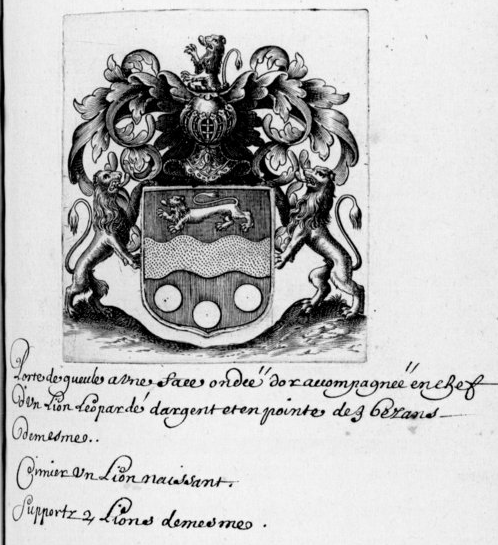 Porte de gueule a une face ondeé d'or accompagneé en chef
d'un Lion Leopardé d'argent et en pointe de 3 bezans
demesme..
Cimier un Lion naissant.
Supportz 2 Lions demesme.